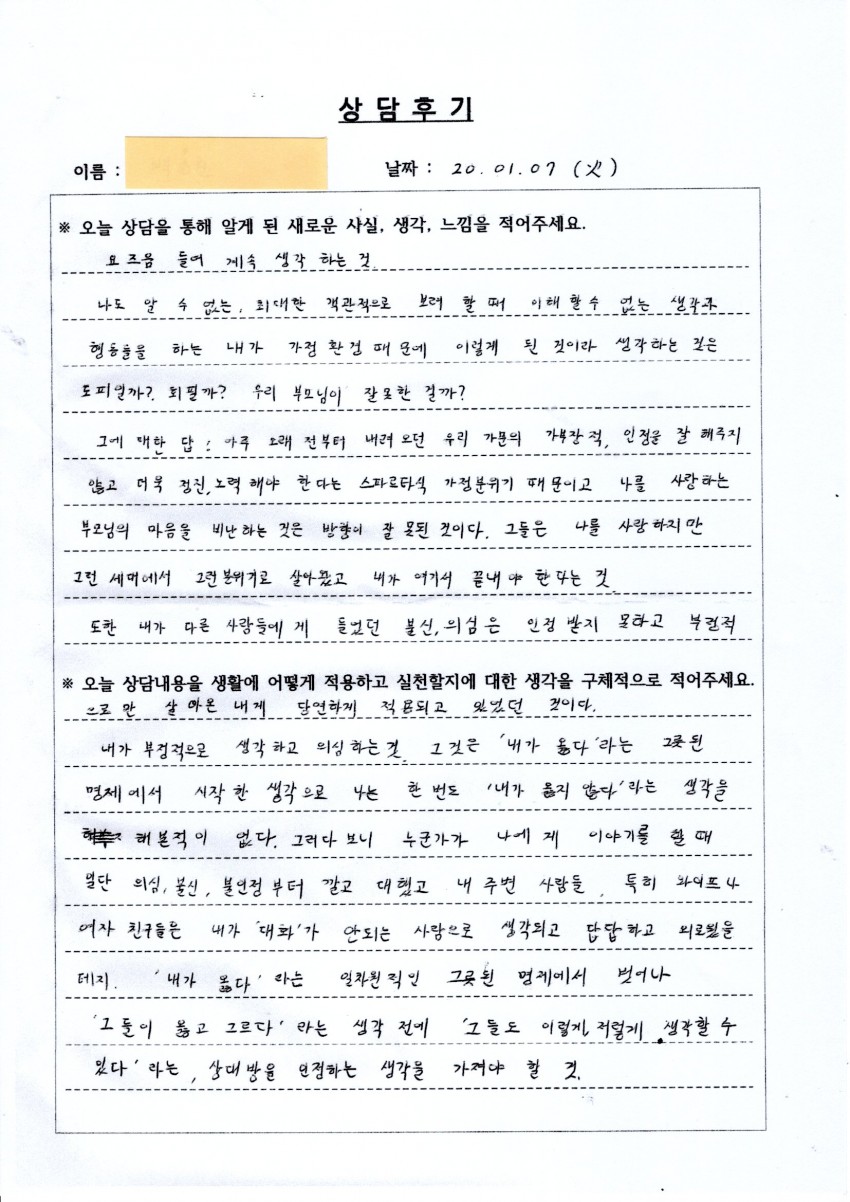 상 담 후 기
이름 :
날짜 : 20. 01. 07 (火)
※ 오늘 상담을 통해 알게 된 새로운 사실, 생각, 느낌을 적어주세요.
요즈음 들어 계속 생각 하는 것.
나도 알 수 없는, 최대한 객관적으로 보려 할 때 이해 할 수 없는 생각과
행동들을 하는 내가 가정 환경 때문에 이렇게 된 것이라 생각하는 것은
도피일까? 회필까? 우리 부모님이 잘못한 걸까?
그에 대한 답 : 아주 오래 전부터 내려 오던 우리 가문의 가부장적, 인정을 잘 해주지
않고 더욱 정진, 노력 해야 한다는 스파르타식 가정분위기 때문이고 나를 사랑하는
부모님의 마음을 비난하는 것은 방향이 잘 못된 것이다. 그들은 나를 사랑하지만
그런 세대에서 그런분위기로 살아왔고 내가 여기서 끝내야 한다는 것.
또한 내가 다른 사람들에게 들었던 불신, 의심은 인정 받지 못하고 부정적
※ 오늘 상담내용을 생활에 어떻게 적용하고 실천할지에 대한 생각을 구체적으로 적어주세요.
으로만 살아온 내게 당연하게 적용되고 있었던 것이다.
내가 부정적으로 생각하고 의심하는 것. 그것은 '내가 옳다'라는 그릇된
명제에서 시작한 생각으로 나는 한번도 '내가 옳지 않다'라는 생각을
해본적이 없다. 그러다 보니 누군가가 나에게 이야기를 할 때
일단 의심, 불신, 불인정부터 깔고 대했고 내 주변 사람들, 특히 와이프나
여자 친구들은 내가 '대화'가 안되는 사람으로 생각되고 답답하고 외로웠을
테지. '내가 옳다' 라는 일차원적인 그릇된 명제에서 벗어나
'그들이 옳고 그르다' 라는 생각 전에 '그들도 이렇게, 저렇게 생각할 수
있다' 라는, 상대방을 인정하는 생각을 가져야 할 것.